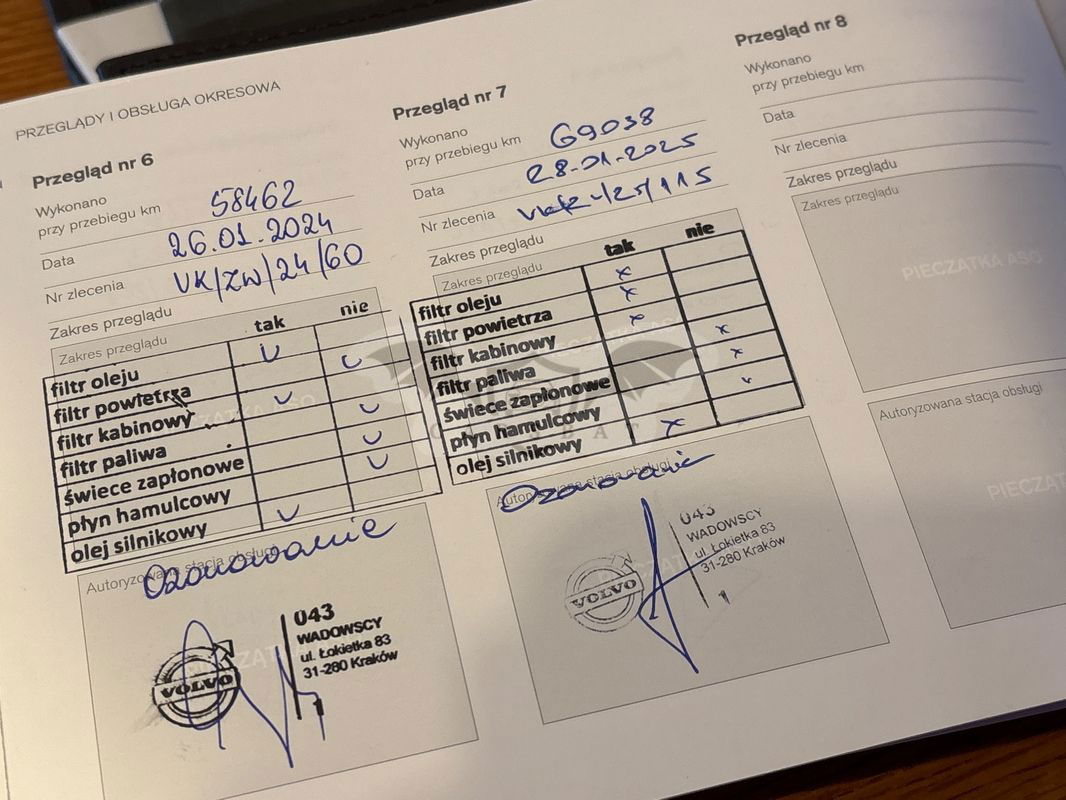 PRZEGLĄDY I OBSŁUGA OKRESOWA
Przegląd nr 6
Wykonano
przy przebiegu km 58462
Data 26.01.2024
Nr zlecenia VK/ZW/24/60
Zakres przeglądu
Zakres przeglądu
tak nie
filtr oleju
filtr powietrza
filtr kabinowy
filtr paliwa
świece zapłonowe
płyn hamulcowy
olej silnikowy
Ozonowanie
Autoryzowana stacja obsługi
VOLVO
043
WADOWSCY
ul. Łokietka 83
31-280 Kraków
1
Przegląd nr 7
Wykonano
przy przebiegu km 69038
Data 28.01.2025
Nr zlecenia
Zakres przeglądu
Zakres przeglądu
tak nie
filtr oleju
filtr powietrza
filtr kabinowy
filtr paliwa
świece zapłonowe
płyn hamulcowy
olej silnikowy
Ozonowanie
Autoryzowana stacja obsługi
VOLVO
043
WADOWSCY
ul. Łokietka 83
31-280 Kraków
1
Przegląd nr 8
Wykonano
przy przebiegu km
Data
Nr zlecenia
Zakres przeglądu
Zakres przeglądu
PIECZĄTKA ASO
Autoryzowana stacja obsługi